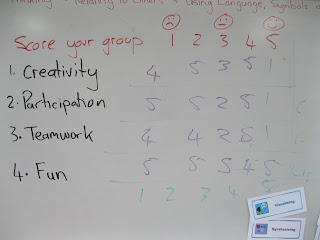 Relating to Others & Using Language, Symbols
Score your group 1 2 3 4 5
1. Creativity 4 5 3 5 1
2. Participation 5 5 2 5 1
3. Teamwork 4 4 2 5 1
4. Fun 5 5 5 4 5
1 2 3 4 5
Visualising
Synthesising